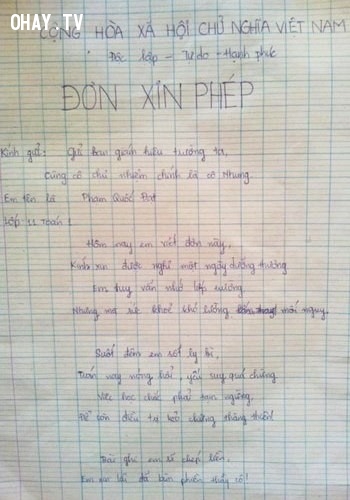 OHAY.TV
CỘNG HÒA XÃ HỘI CHỦ NGHĨA VIỆT NAM
Độc lập - Tự do - Hạnh phúc
ĐƠN XIN PHÉP
Kính gửi: Gửi ban giám hiệu trường ta,
Cùng cô chủ nhiệm chính là cô Nhung.
Em tên là Phạm Quốc Đạt
Lớp 11 Toán 1
Hôm nay em viết đơn này,
Kính xin được nghỉ một ngày dưỡng thương
Em tuy vẫn nhớ lớp
Nhưng mà sức khoẻ khó lường mối nguy.
Suốt đêm em sốt ly bì,
Tuấn này mỏng, yếu suy quá chừng
Việc học chắc phải tạm ngừng,
Để còn điều trị kẻo chừng thăng thiên!
Bài ghi em sẽ chép liền,
Em xin lỗi đã làm phiền thầy cô!